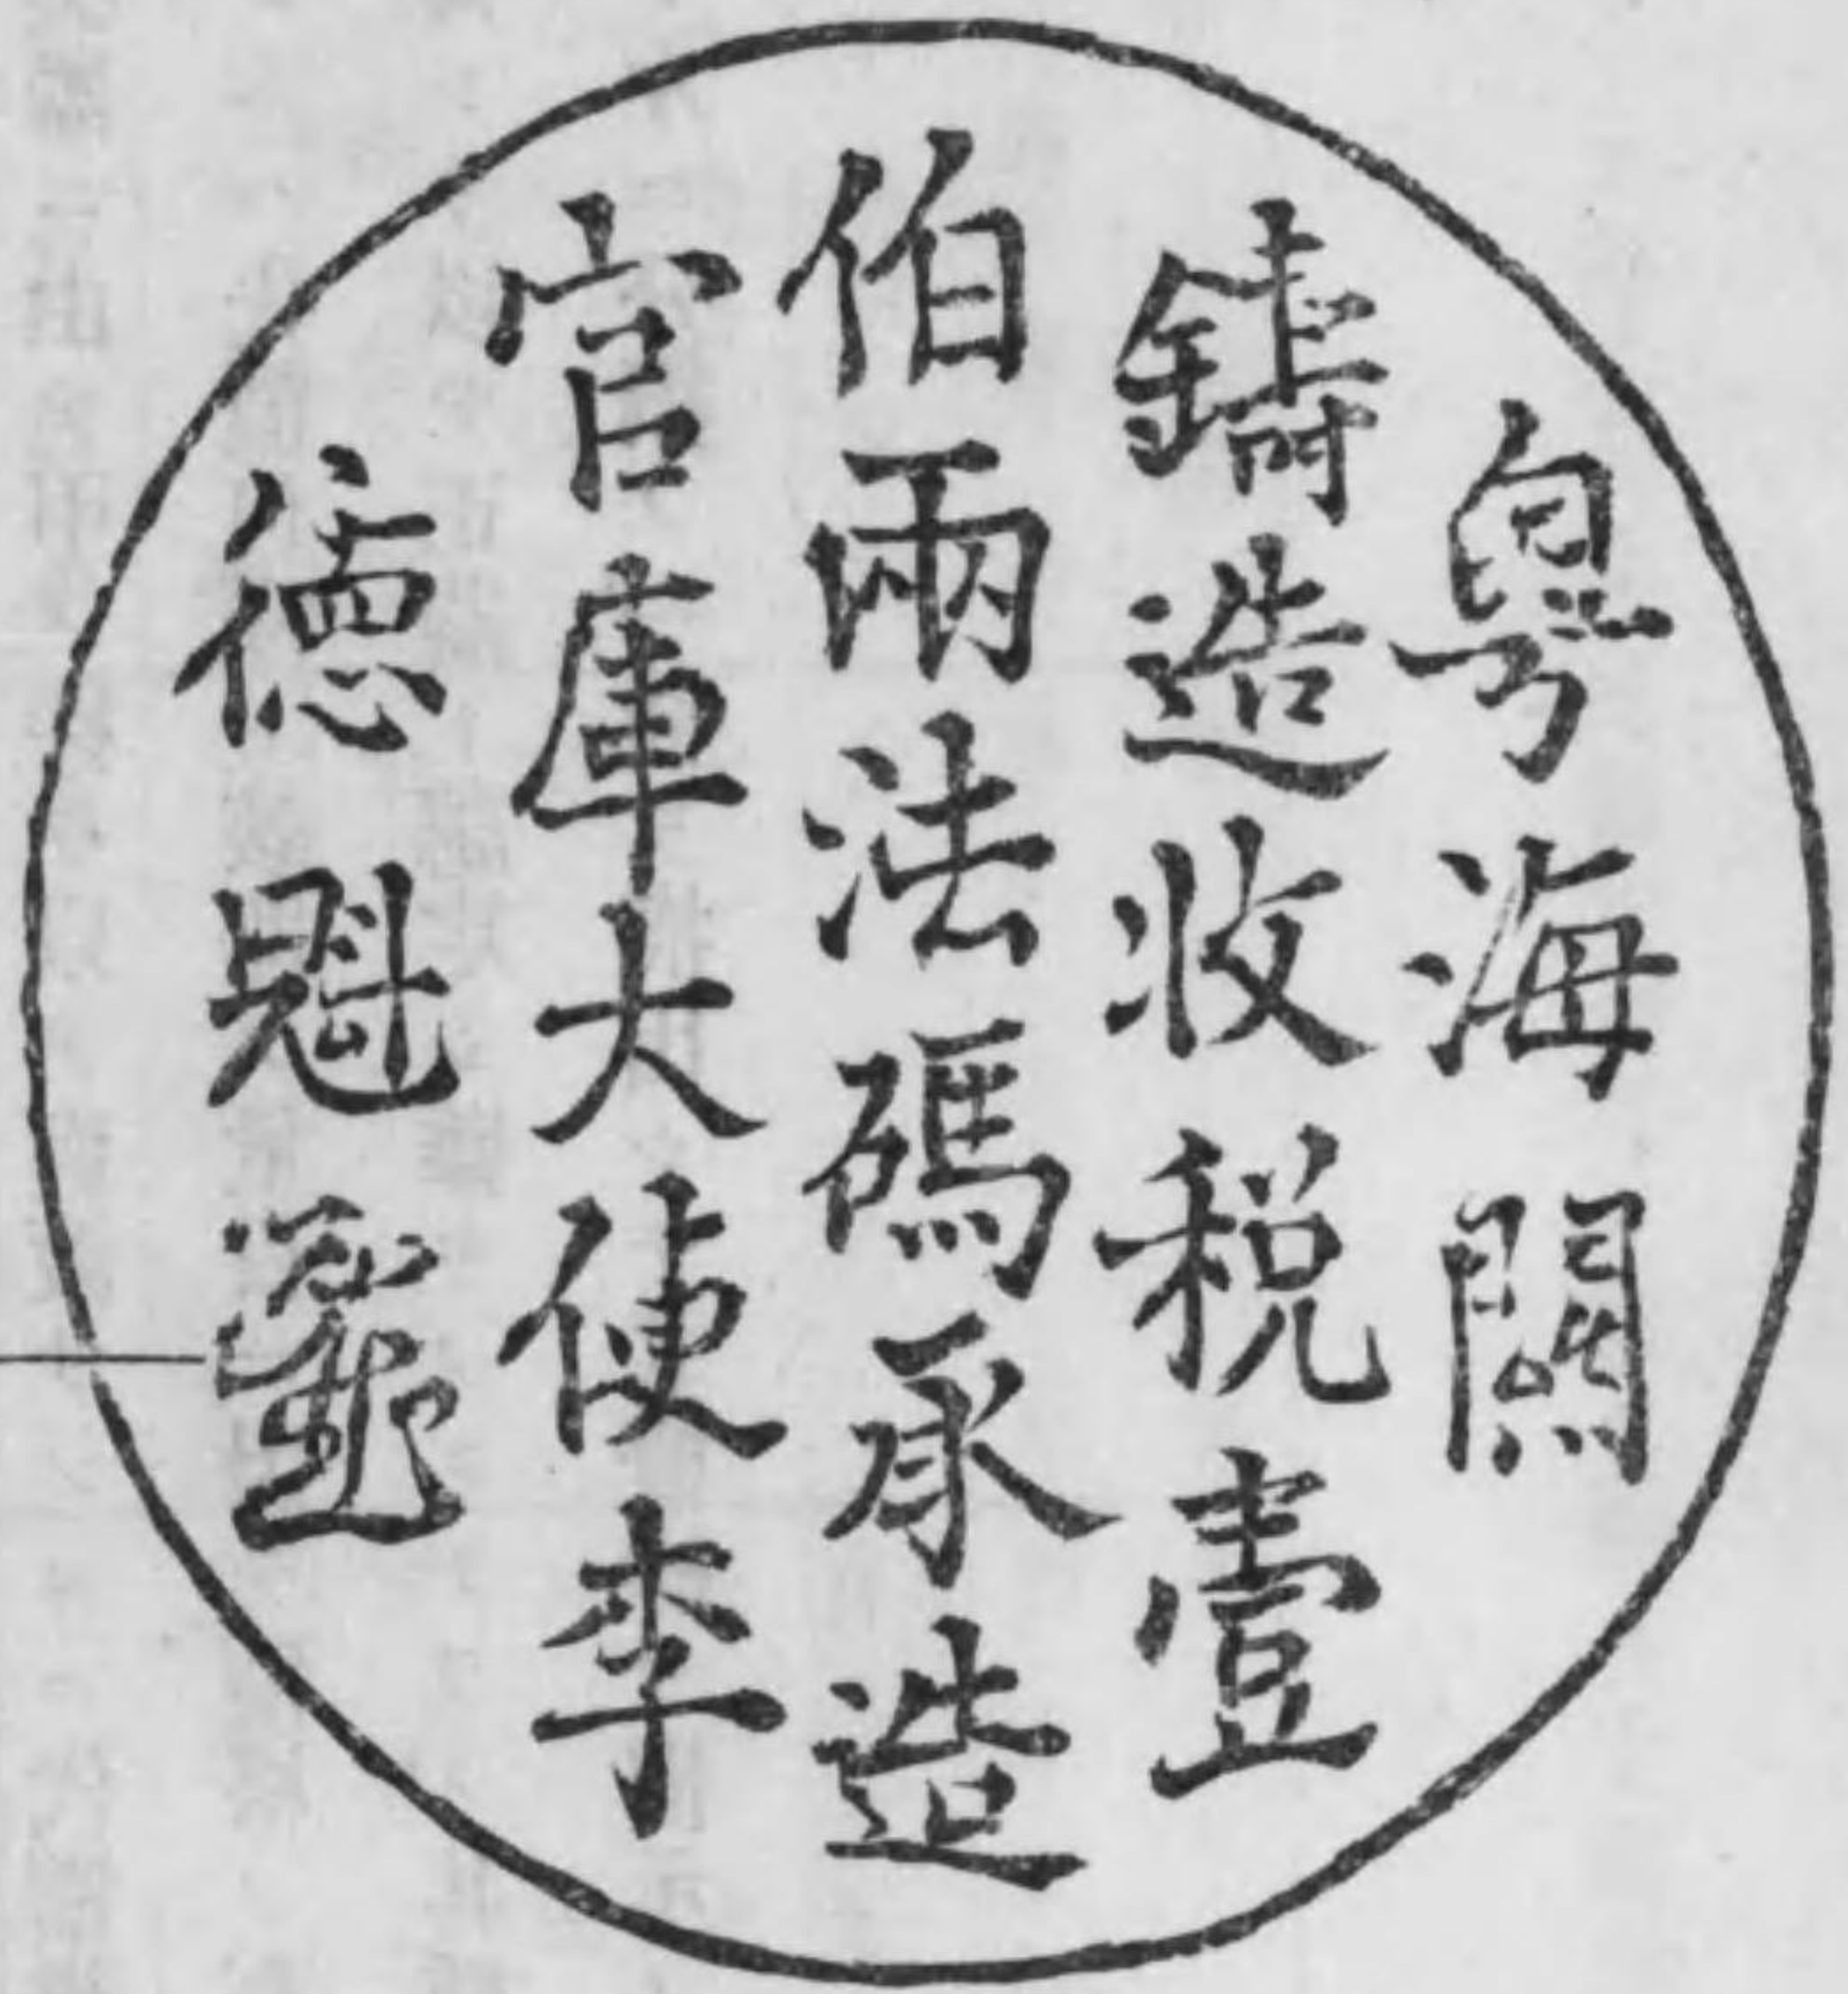 粤海關
鑄造收税壹
伯兩法碼承造
官庫大使李
德魁